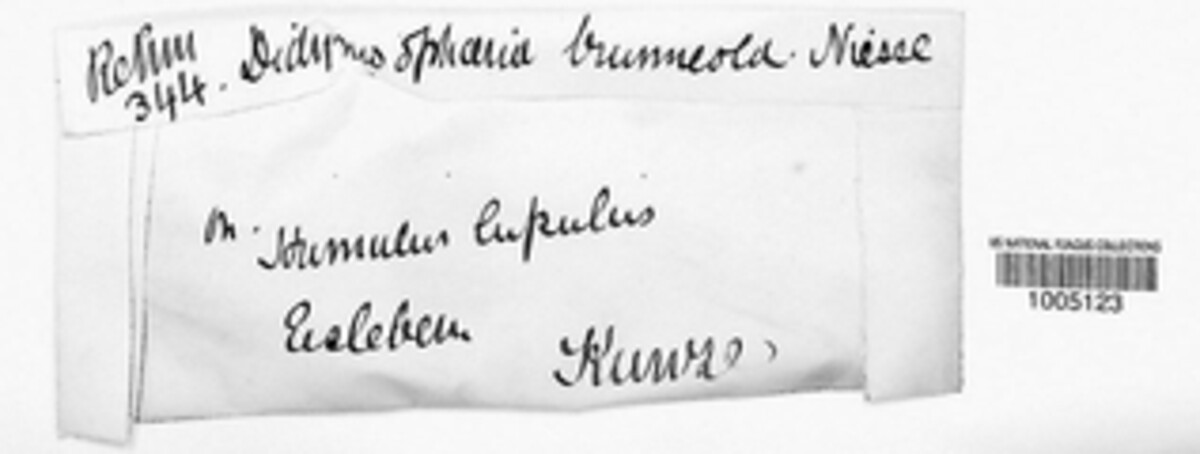 Rehm
344. Didymosphaeria brunneola. Niessl
on. Humulus lupulus
Eisleben
Kunze
US NATIONAL FUNGUS COLLECTIONS
1005123